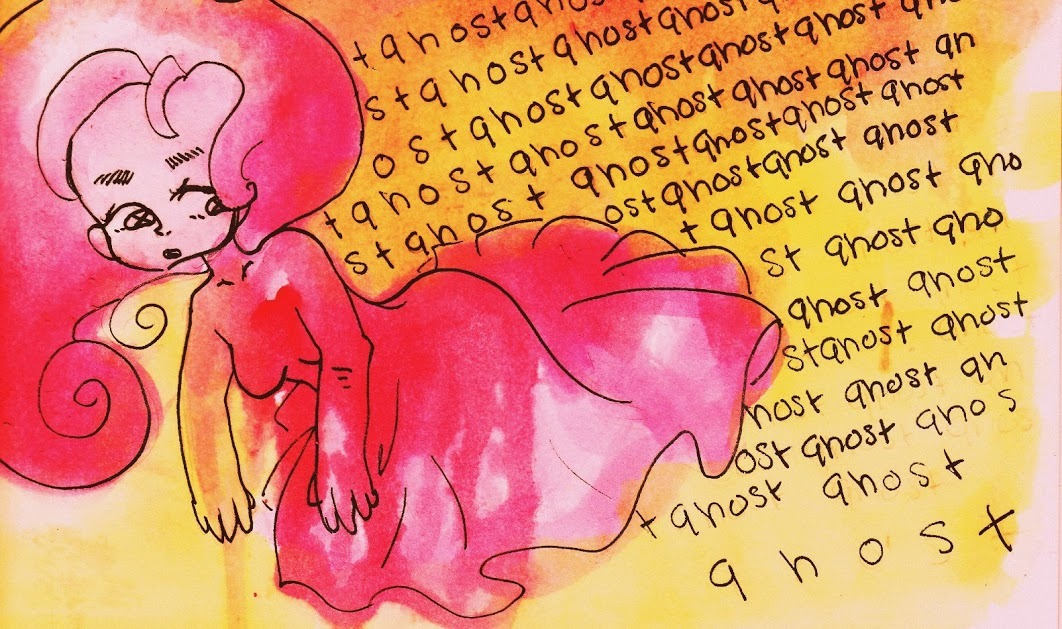 tghostghos
stghostghostghost
ostghostghostghostghostgho
tghost ghostghostghostghost gh
stghost ghostghostghostghost
ostghostghost ghost
t ghost ghost gho
st ghost gho
ghost ghost
stghost ghost
host ghost gh
ostghost ghos
tghost ghost
ghost